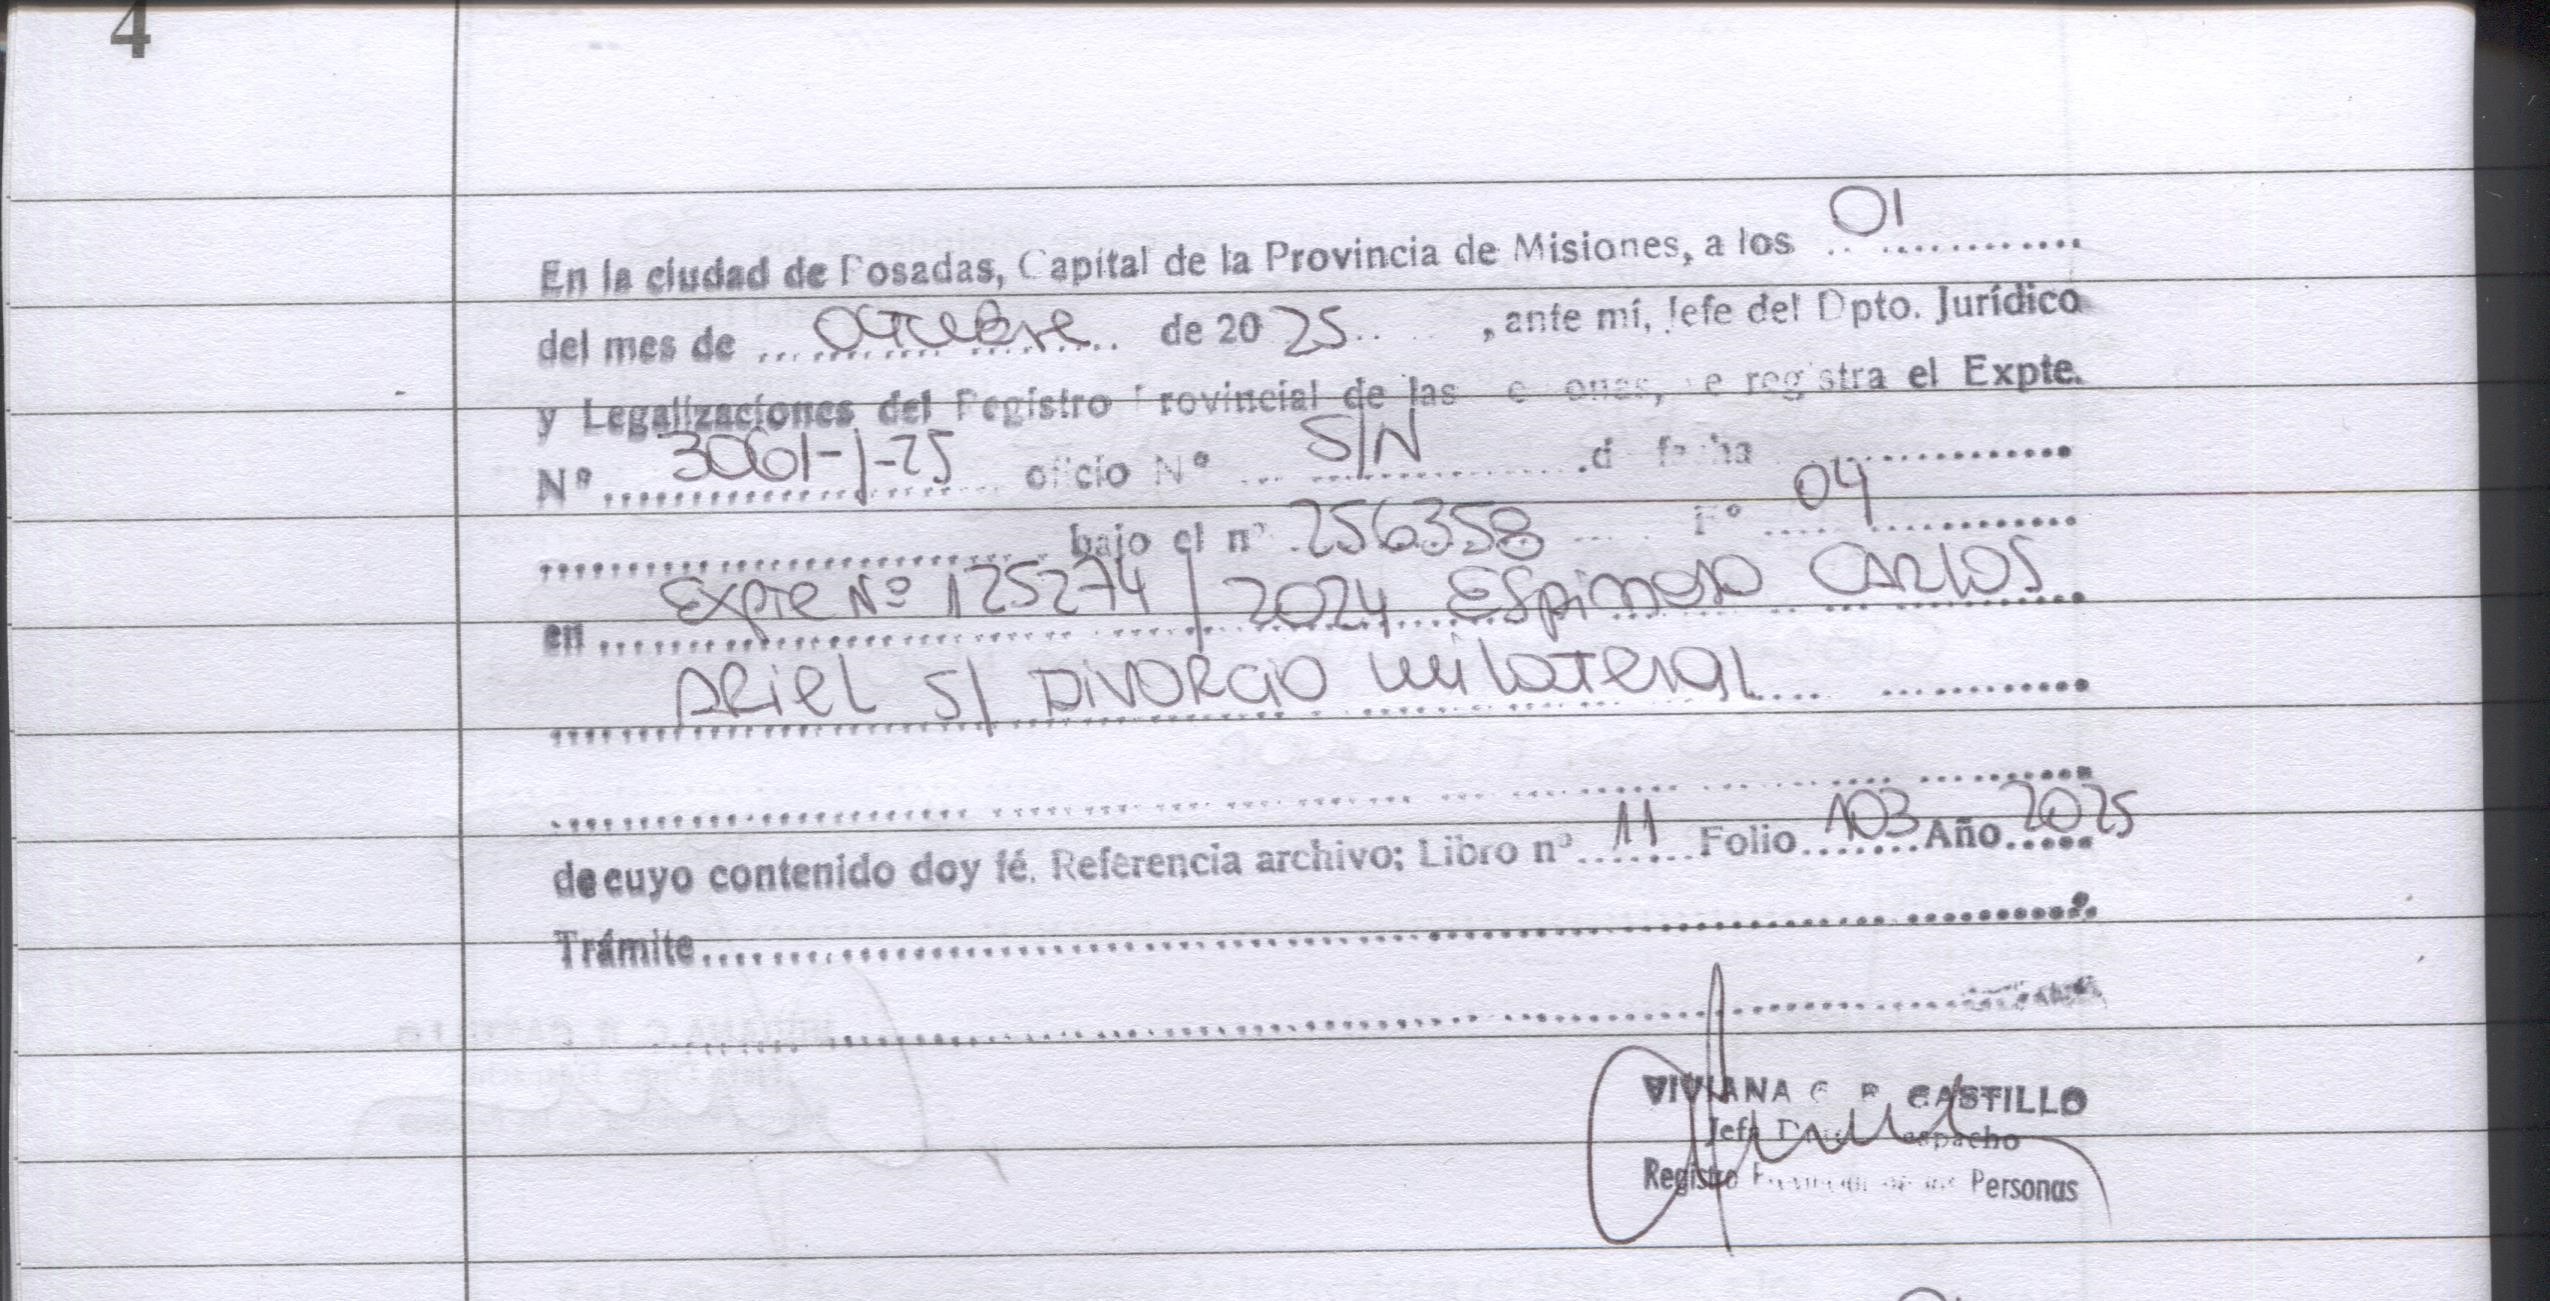 4
En la ciudad de Posadas, Capital de la Provincia de Misiones, a los 01
del mes de Octubre de 2025, ante mí, Jefe del Dpto. Jurídico
y Legalizaciones del Registro Provincial de las Personas, se registra el Expte.
Nº 3061-J-25 oficio Nº S/N de fecha
bajo el nº 256358 Fº 04
en Expte Nº 125274/2024 Espinoso CARLOS
ARIEL S/ DIVORCIO unilateral
de cuyo contenido doy fé. Referencia archivo; Libro nº 11 Folio 103 Año 2025
Trámite
VIVIANA C. R. CASTILLO
Jefa Dpto. Despacho
Registro Provincial de las Personas